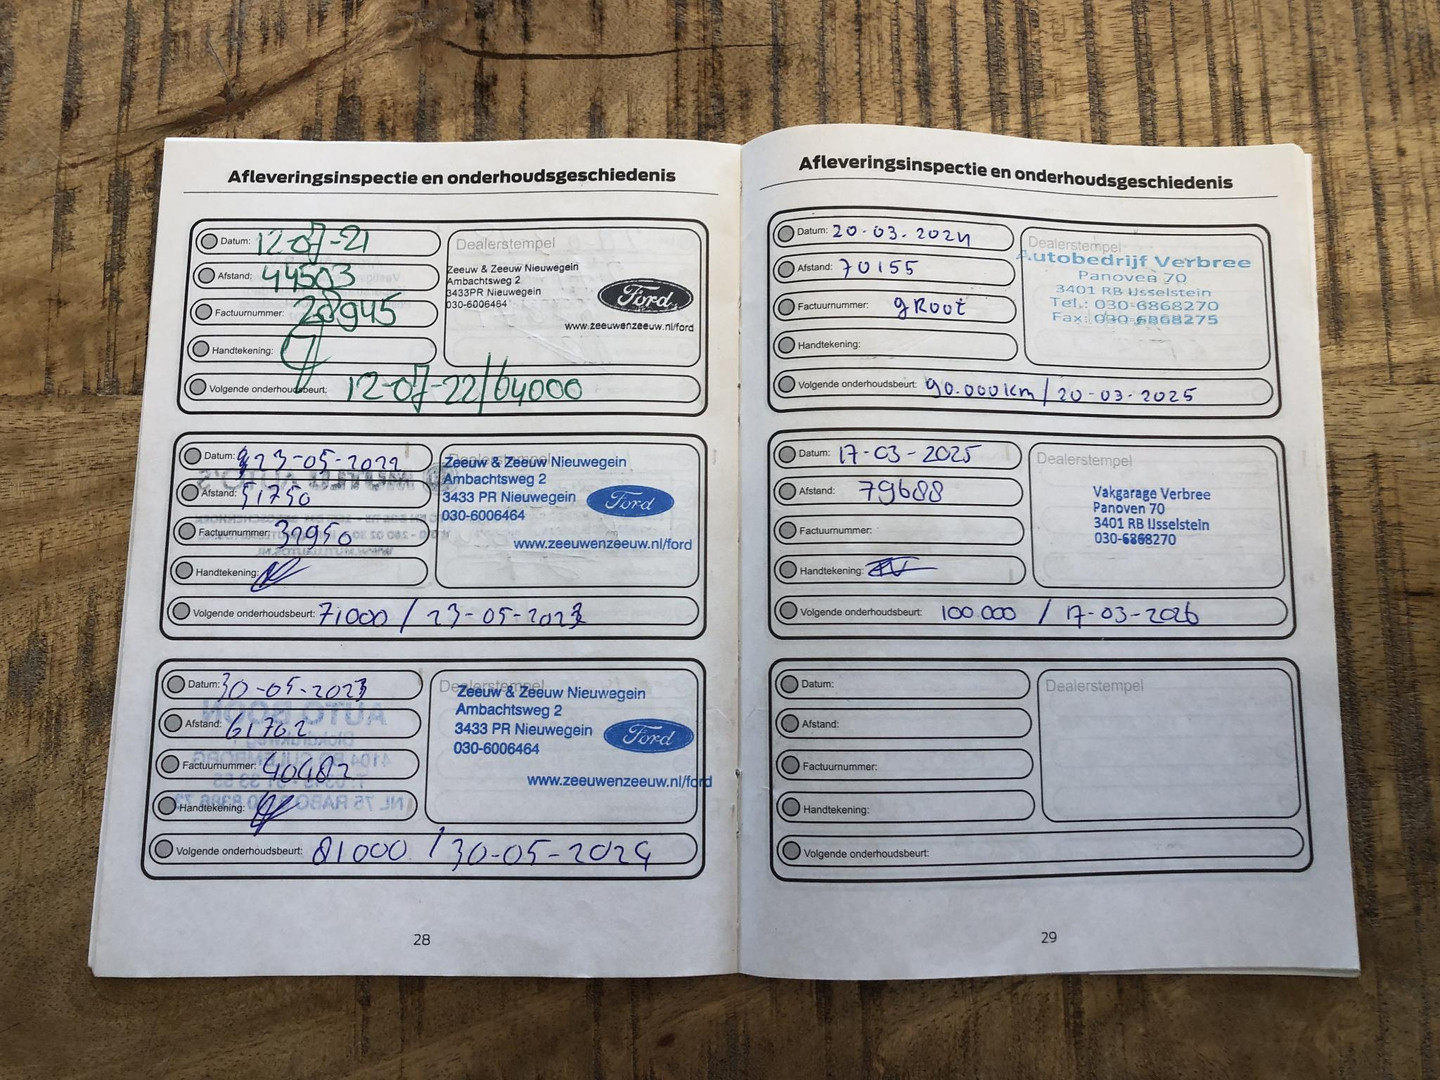 Afleveringsinspectie en onderhoudsgeschiedenis
Datum: 12-07-21
Afstand: 44503
Factuurnummer: 28945
Handtekening:
Volgende onderhoudsbeurt: 12-07-22/64000
Dealerstempel
Zeeuw & Zeeuw Nieuwegein
Ambachtsweg 2
3433PR Nieuwegein
030-6006464
Ford
www.zeeuwenzeeuw.nl/ford
Datum: 23-05-2022
Afstand: 51750
Factuurnummer: 32950
Handtekening:
Volgende onderhoudsbeurt: 71000 / 23-05-2023
Dealerstempel
Zeeuw & Zeeuw Nieuwegein
Ambachtsweg 2
3433 PR Nieuwegein
030-6006464
Ford
www.zeeuwenzeeuw.nl/ford
Datum: 30-05-2023
Afstand: 61702
Factuurnummer: 40482
Handtekening:
Volgende onderhoudsbeurt: 81000 / 30-05-2024
Dealerstempel
Zeeuw & Zeeuw Nieuwegein
Ambachtsweg 2
3433 PR Nieuwegein
030-6006464
Ford
www.zeeuwenzeeuw.nl/ford
28
Afleveringsinspectie en onderhoudsgeschiedenis
Datum: 20-03-2024
Afstand: 70155
Factuurnummer: gRoot
Handtekening:
Volgende onderhoudsbeurt: 90.000km / 20-03-2025
Dealerstempel
Autobedrijf Verbree
Panoven 70
3401 RB IJsselstein
Tel.: 030-6868270
Fax: 030-6868275
Datum: 17-03-2025
Afstand: 79688
Factuurnummer:
Handtekening:
Volgende onderhoudsbeurt: 100.000 / 17-03-2026
Dealerstempel
Vakgarage Verbree
Panoven 70
3401 RB IJsselstein
030-6868270
Datum:
Afstand:
Factuurnummer:
Handtekening:
Volgende onderhoudsbeurt:
Dealerstempel
29